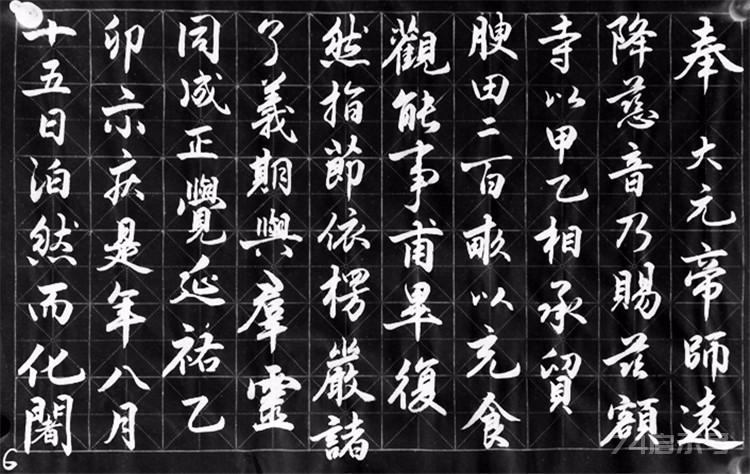 奉大元帝師遠
降慈音乃賜茲額
寺以甲乙相承貿
腴田二百畝以充食
觀能事甫畢復
然指節依楞嚴諸
了義期與羣靈
同成正覺延祐乙
卯示疾是年八月
十五日泊然而化闍
6